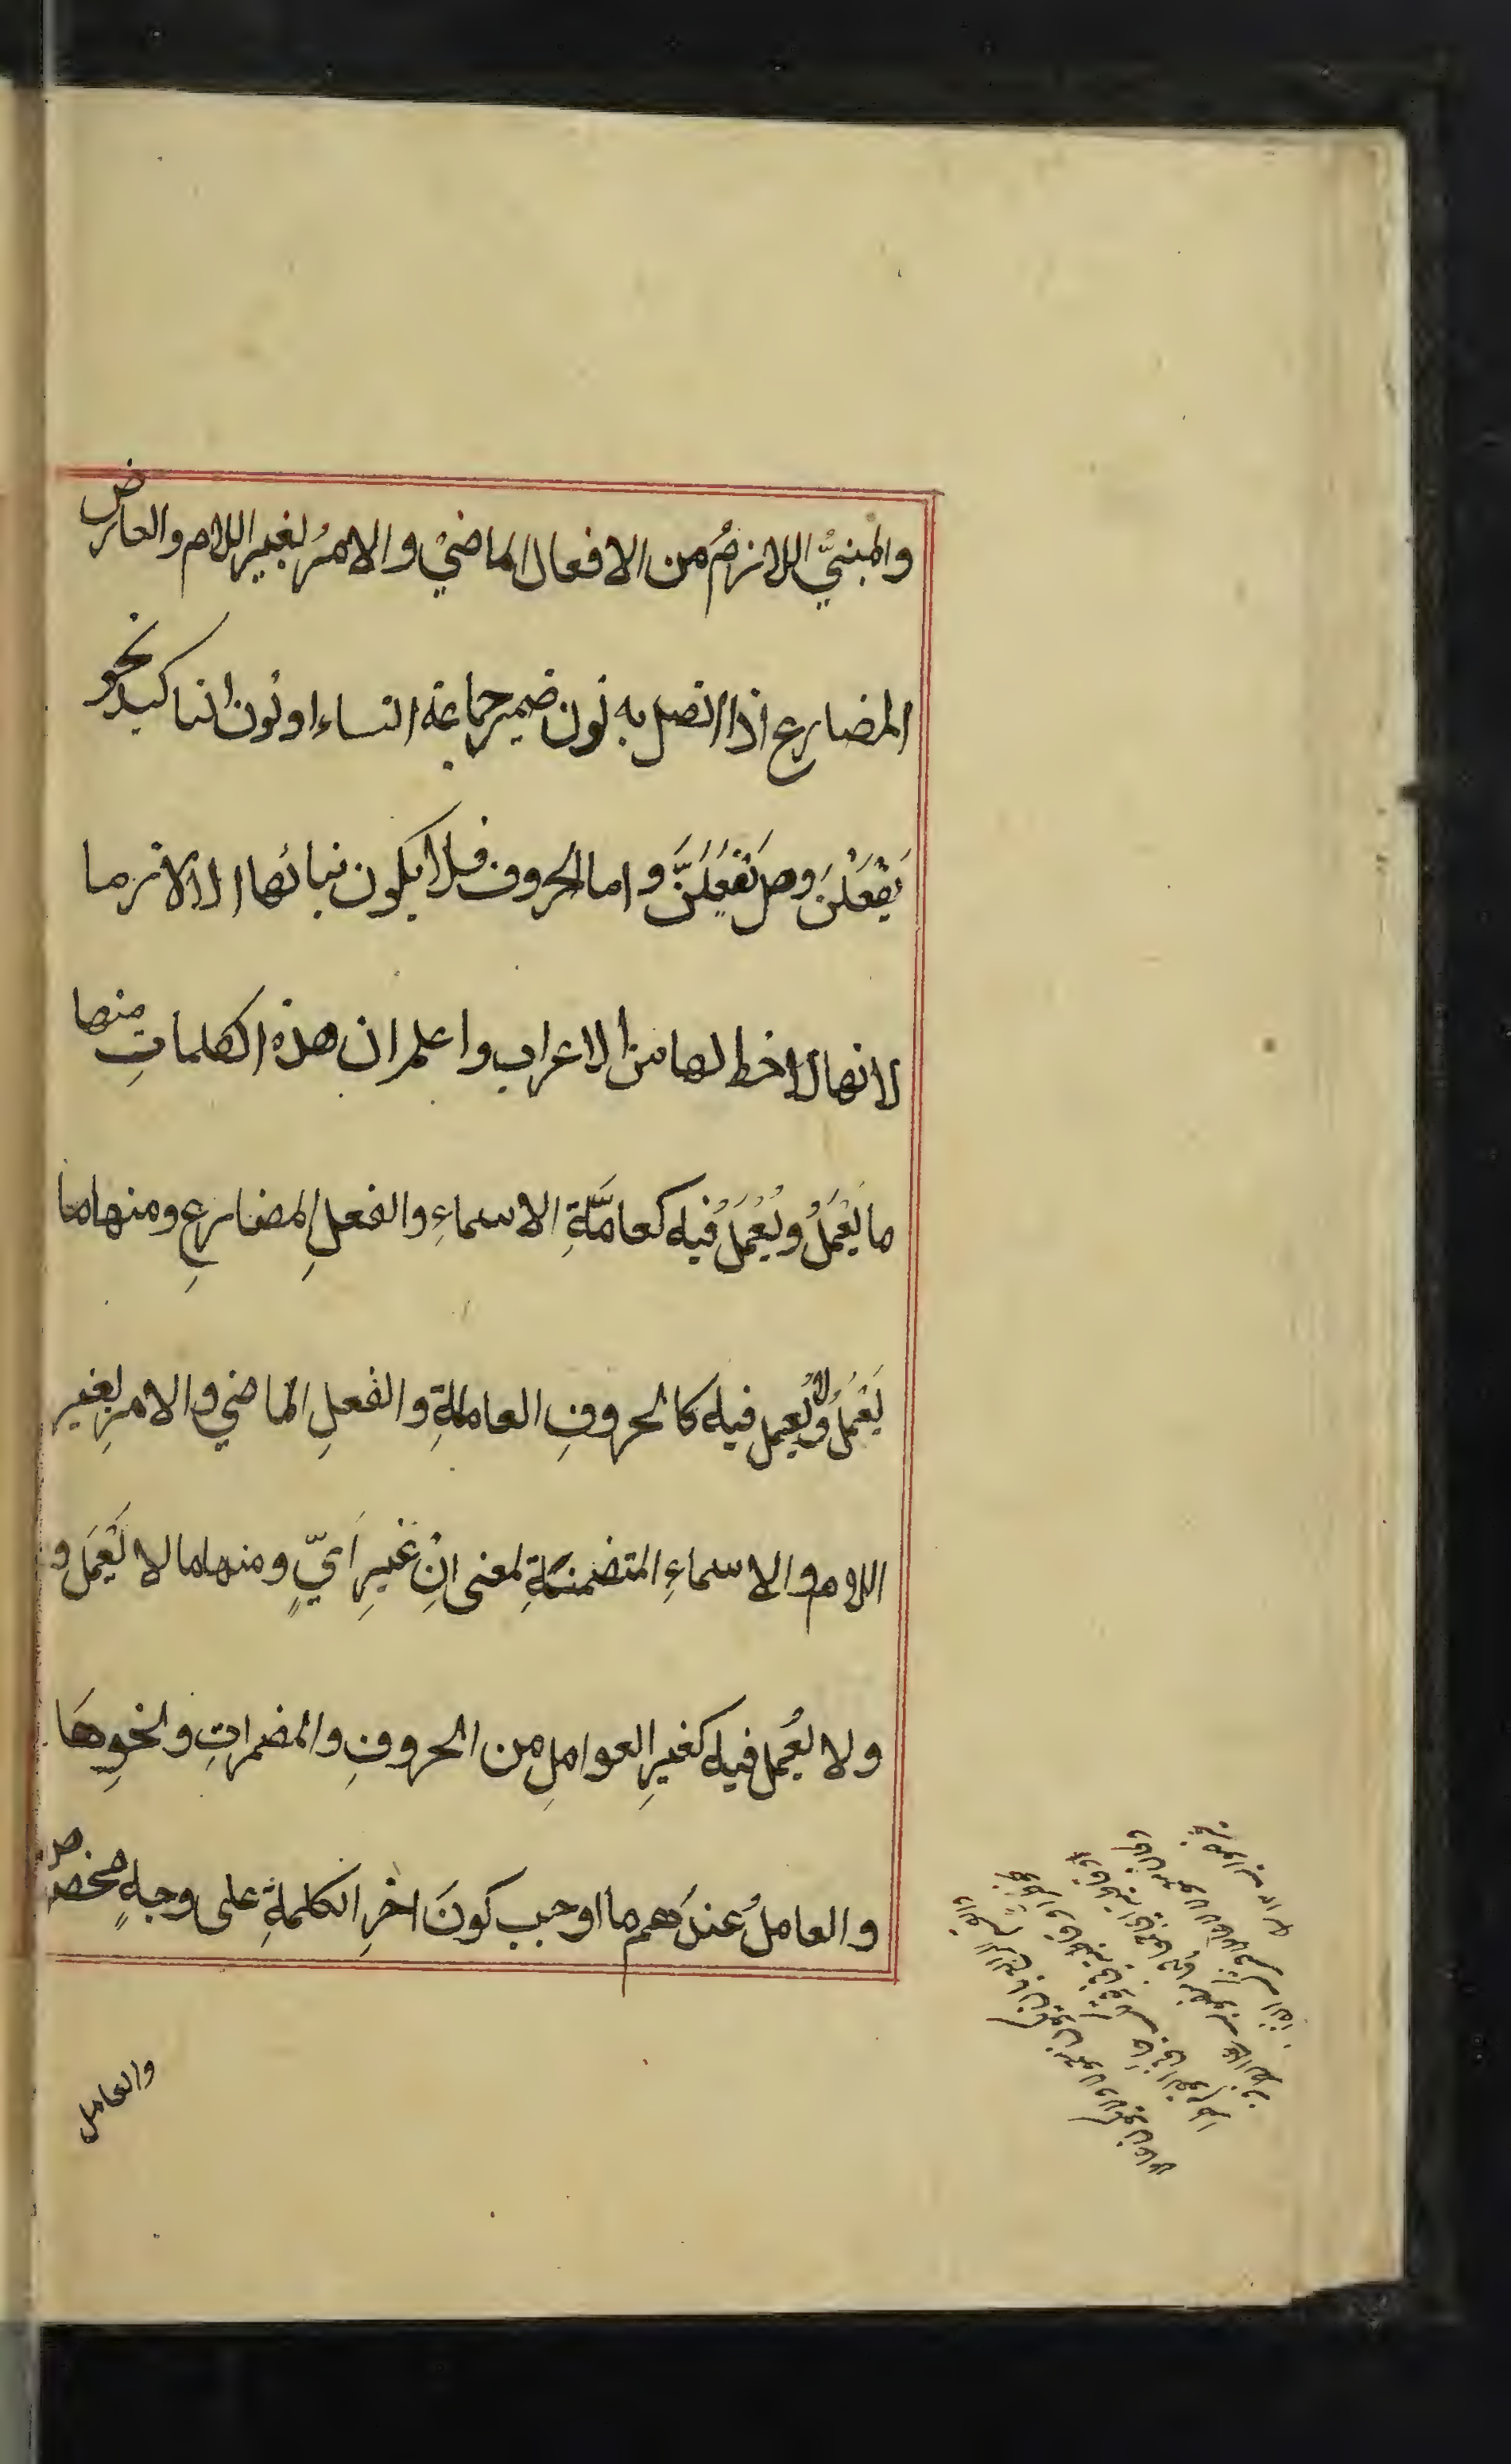 والمبنيُّ اللازمُ من الافعال الماضيْ والامرُ لغير اللام والعارض
المضارع اذا اتصل به نون ضمير جماعة النساء او نون التاكيد نحو
يَفْعَلْنَ وهل تَفْعَلَنَّ و اما الحروف فلا يكون بنائها الا لازما
لانها لاخط لها من الاعراب واعلم ان هذه الكلماتِ منها
ما يَعْمَلُ ويُعْمَلُ فيه كعامَّةِ الاسماءِ والفعلِ المضارعِ ومنها ما
يَعْمَلُ ولا يُعمل فيه كالحروفِ العاملةِ والفعلِ الماضي والامرِ لغير
اللام والاسماءِ المتضمنةِ لمعنى اِنْ غيرِ اَيٍّ ومنها ما لا يَعْمَل و
ولا يُعمل فيه كغيرِ العواملِ من الحروفِ والمضمراتِ ونحوِهَا
والعاملُ عندَهم ما اوجب كونَ اخرِ الكلمةِ على وجهٍ مخصوص
والعامل